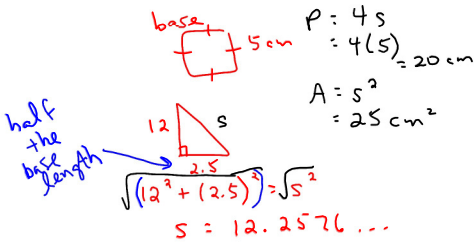 base
5 cm
P = 4s
= 4(5)
= 20 cm
A = s²
= 25 cm²
12
s
2.5
half
the
base
length
√(12² + (2.5)²) = √s²
s = 12.2576 ...